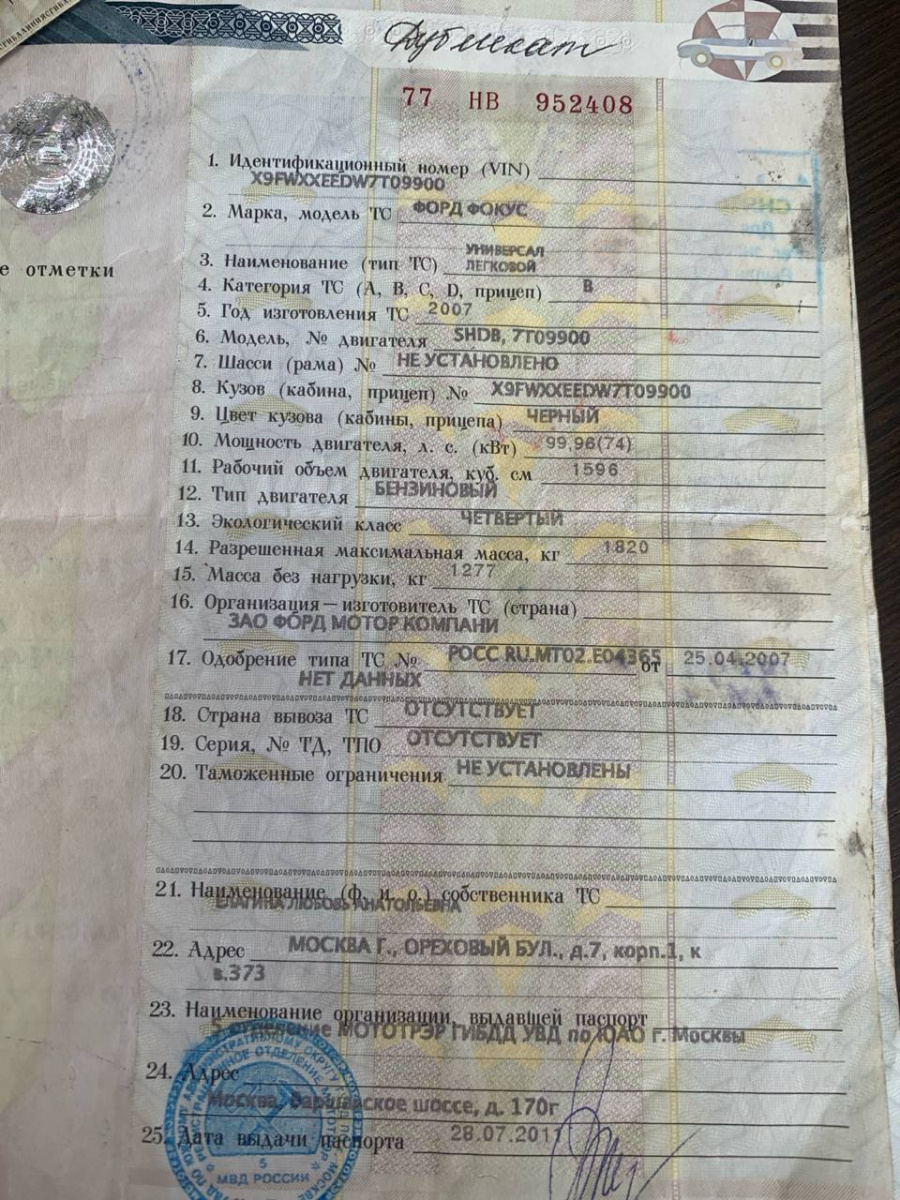 Дубликат
77 НВ 952408
е отметки
1. Идентификационный номер (VIN)
X9FWXXEEDW7T09900
2. Марка, модель ТС ФОРД ФОКУС
УНИВЕРСАЛ
3. Наименование (тип ТС) ЛЕГКОВОЙ
4. Категория ТС (А, В, С, D, прицеп) В
5. Год изготовления ТС 2007
6. Модель, № двигателя SHDB, 7T09900
7. Шасси (рама) № НЕ УСТАНОВЛЕНО
8. Кузов (кабина, прицеп) № X9FWXXEEDW7T09900
9. Цвет кузова (кабины, прицепа) ЧЕРНЫЙ
10. Мощность двигателя, л. с. (кВт) 99,96(74)
11. Рабочий объем двигателя, куб. см 1596
12. Тип двигателя БЕНЗИНОВЫЙ
13. Экологический класс ЧЕТВЕРТЫЙ
14. Разрешенная максимальная масса, кг 1820
15. Масса без нагрузки, кг 1277
16. Организация—изготовитель ТС (страна)
ЗАО ФОРД МОТОР КОМПАНИ
17. Одобрение типа ТС № РОСС RU.MT02.E04365 от 25.04.2007
НЕТ ДАННЫХ
18. Страна вывоза ТС ОТСУТСТВУЕТ
19. Серия, № ТД, ТПО ОТСУТСТВУЕТ
20. Таможенные ограничения НЕ УСТАНОВЛЕНЫ
21. Наименование (ф. и. о.) собственника ТС
ЕЛАГИНА ЛЮБОВЬ АНАТОЛЬЕВНА
22. Адрес МОСКВА Г., ОРЕХОВЫЙ БУЛ., д.7, корп.1, к
в.373
23. Наименование организации, выдавшей паспорт
5 отделение МОТОТРЭР ГИБДД УВД по ЮАО г. Москвы
24. Адрес
Москва, Варшавское шоссе, д. 170г
25. Дата выдачи паспорта 28.07.2011
5
МВД РОССИИ